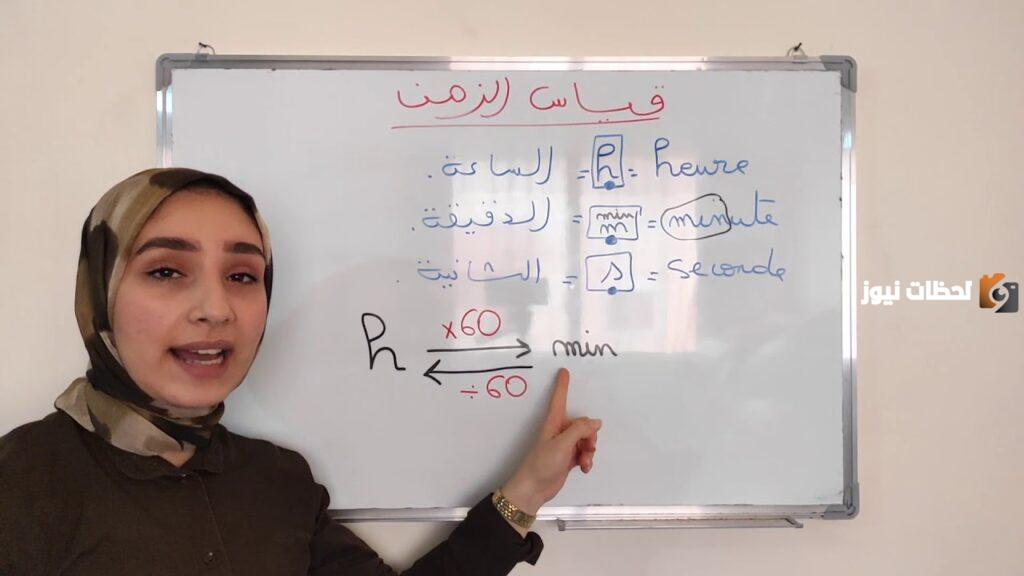 قياس الزمن
الساعة = h = heure.
الدقيقة = min m = minute.
الثانية = s = seconde.
h ×60 min
÷60
لحظات نيوز